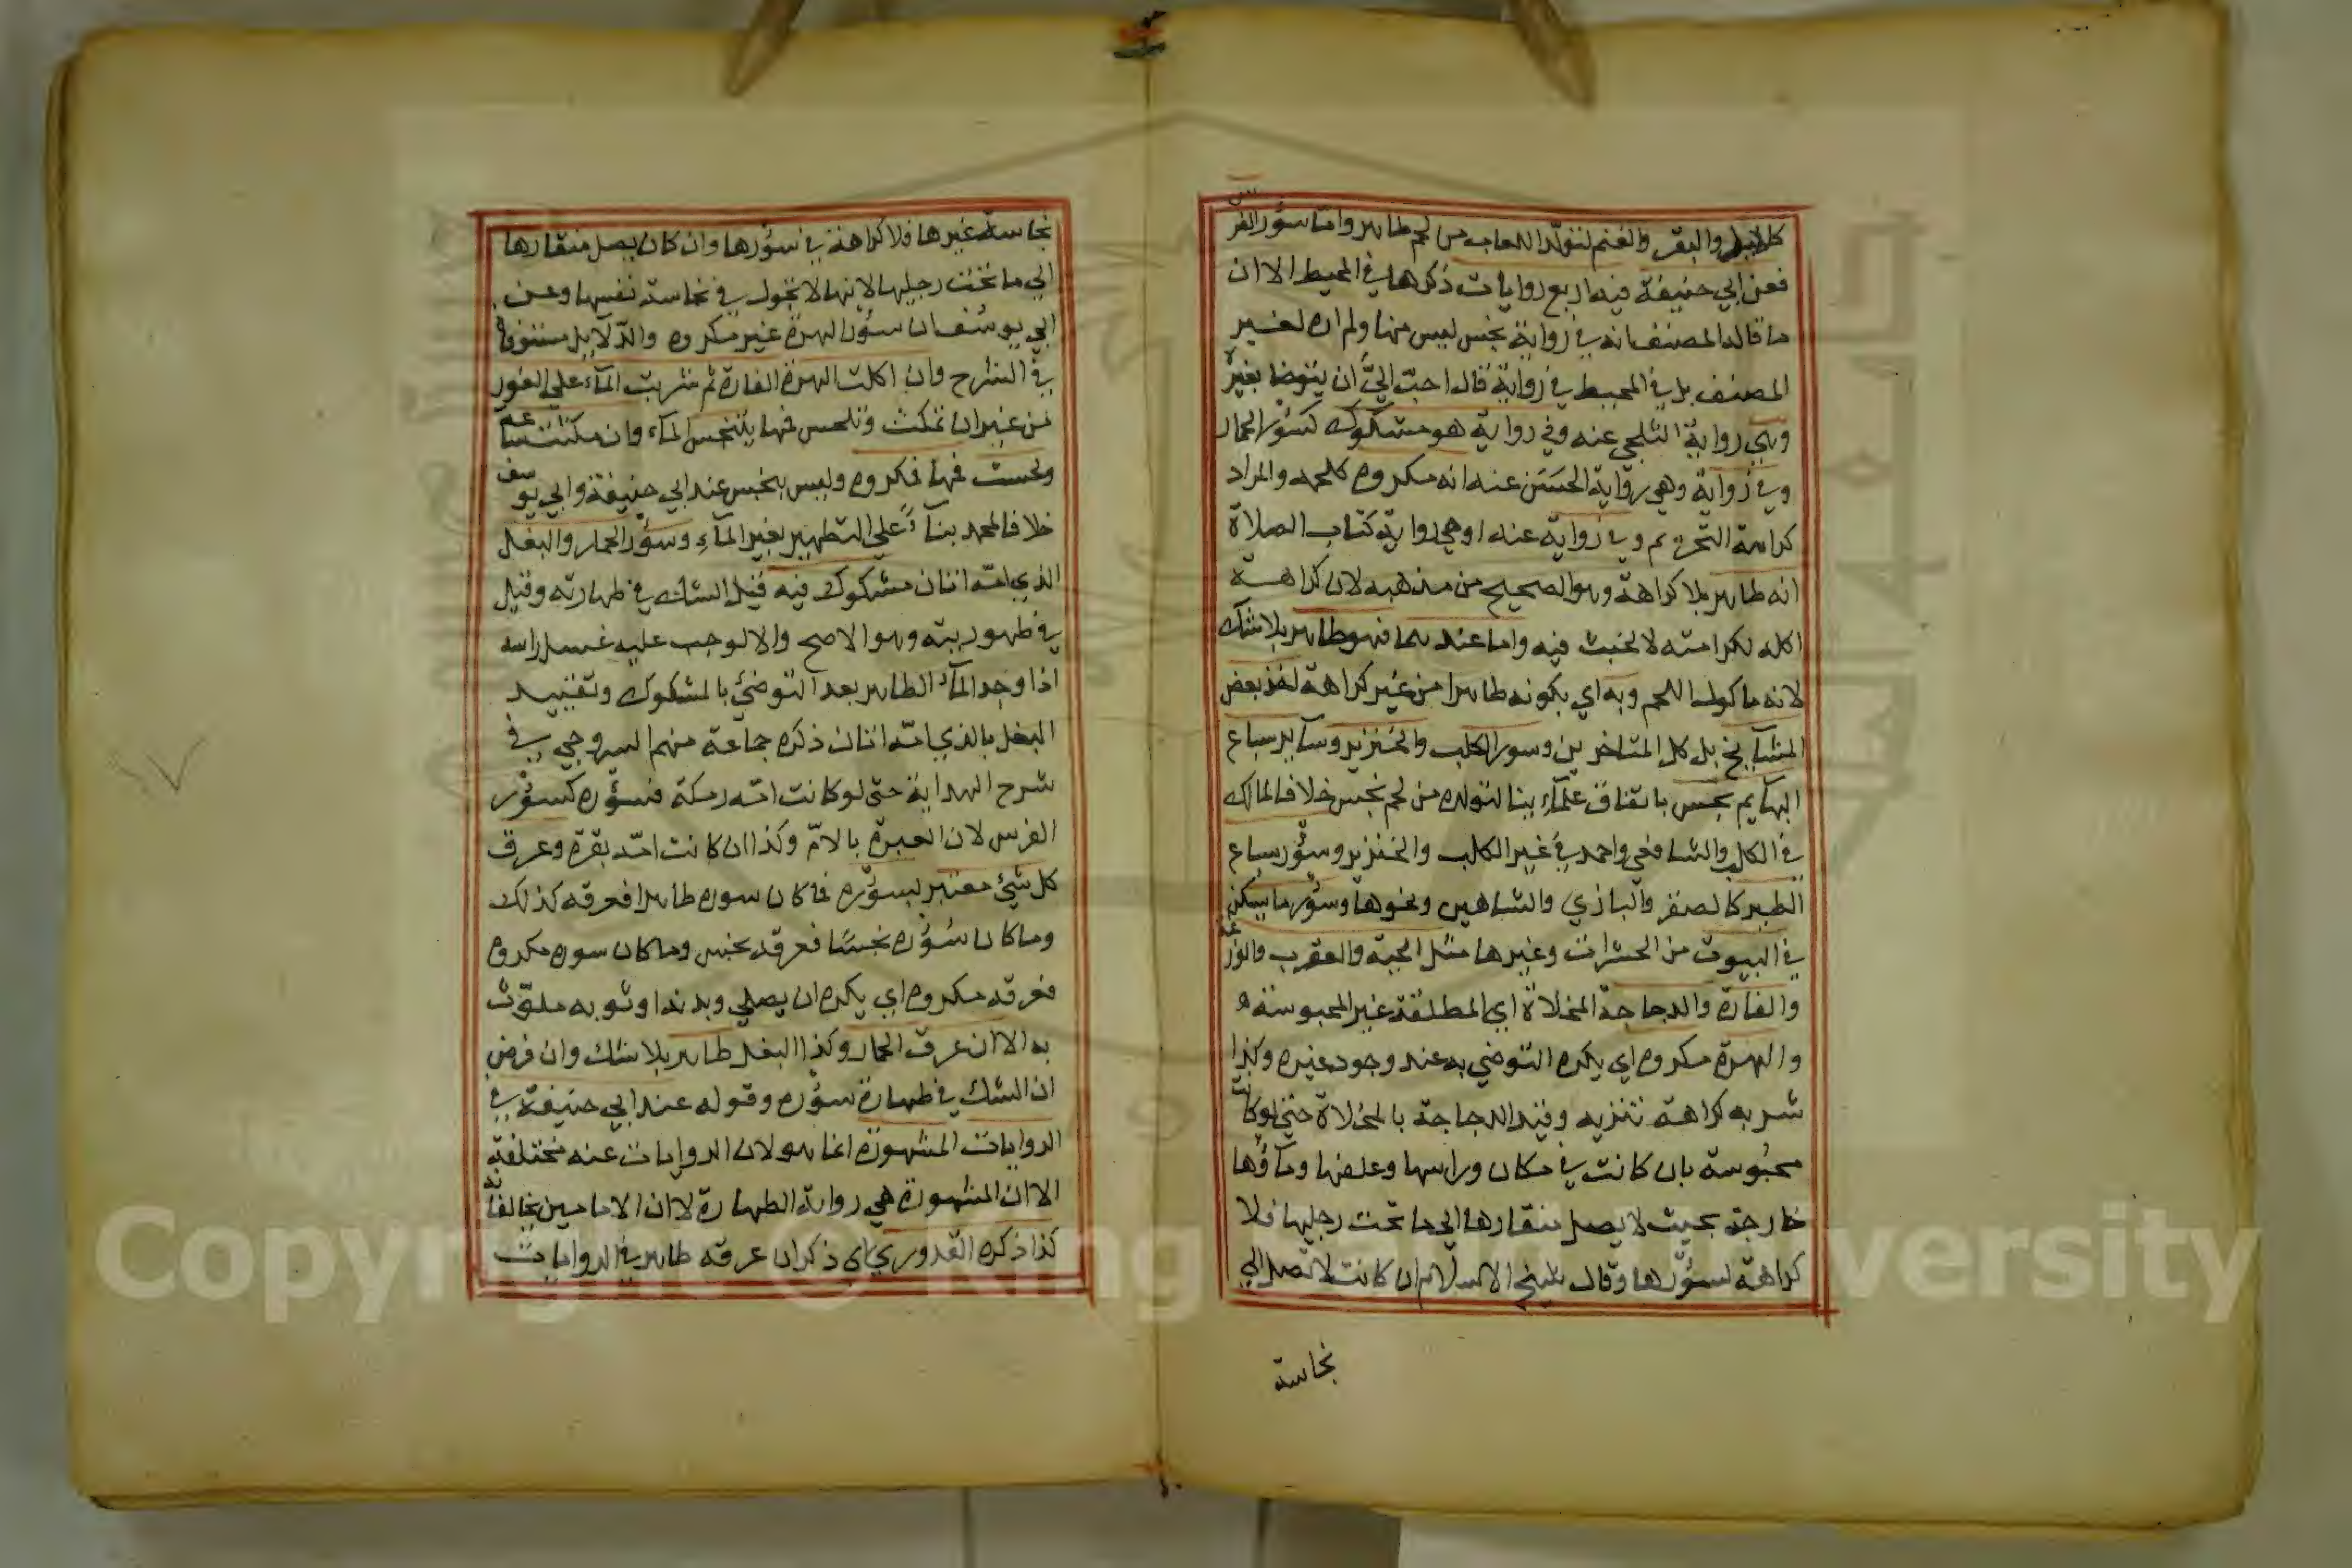 كالابل والبقر والغنم لتولد اللعاب من لحم طاهر واما سؤر الفرس
فعن ابي حنيفة فيه اربع روايات ذكرها في المحيط الا ان
ما قاله المصنف انه في رواية نجس ليس منها ولم اره لغير
المصنف بل في المحيط في رواية قال احبّ اليَّ ان يتوضا بغيره
وهي رواية البلخي عنه وفي رواية هو مشكوك كسؤر الحمار
وفي رواية وهي رواية الحسَن عنه انه مكروه كلحمه والمراد
كراهة التحريم وفي رواية عنه وهي رواية كتاب الصلاة
انه طاهر بلا كراهة وهو الصحيح من مذهبه لان كراهة
اكله لكرامته لا لخبث فيه واما عندهما فهو طاهر بلا شك
لانه ماكول اللحم وبه اي بكونه طاهرا من غير كراهة اخذ بعض
المشايخ بل كل المتاخرين وسور الكلب والخنزير وسآير سباع
البهآيم نجس باتفاق علمآء ينا لتولده من لحم نجس خلافا لمالك
في الكل والشافعي واحمد في غير الكلب والخنزير وسؤر سباع
الطير كالصقر والبازي والشاهين ونحوها وسؤر ما يسكن
في البيوت من الحشرات وغيرها مثل الحية والعقرب والوزغة
والفارة والدجاجة المخلاة اي المطلقة غير المحبوسة
والهرة مكروه اي يكره التوضي به عند وجود غيره وكذا
شربه كراهة تنزيه وقيد الدجاجة بالمخلاة حتى لو كانت
محبوسة بان كانت في مكان وراسها وعلفها ومآؤها
خارجة بحيث لا يصل منقارها الي ما تحت رجليها فلا
كراهة لسؤرها وقال شيخ الاسلام ان كانت لا تصل الي
نجاسة
نجاسة غيرها فلا كراهة في سؤرها وان كان يصل منقارها
الي ما تحت رجليها لانها لا تجول في نجاسة نفسها وعن
ابي يوسف ان سؤر الهرة غير مكروه والدلايل مستوفاة
في الشرح وان اكلت الهرة الفارة ثم شربت المآء علي الفور
من غير ان تمكث وتلحس فمها يتنجس المآء وان مكثت ساعة
ولحست فمها فمكروه وليس بنجس عند ابي حنيفة وابي يوسف
خلافا لمحمد بنآءً علي التطهير بغير المآء وسؤر الحمار والبغل
الذي امّه اتان مشكوك فيه قيل الشك في طهارته وقيل
في طهوريته وهو الاصح والا لوجب عليه غسل راسه
اذا وجد المآء الطاهر بعد التوضئ بالمشكوك وتقييد
البغل بالذي امّه اتان ذكره جماعة منهم السروجي في
شرح الهداية حتى لو كانت امّه رمكة فسؤره كسؤر
الفرس لان العبرة بالامّ وكذا ان كانت امّه بقرة وعرق
كل شيئ معتبر بسؤره فما كان سوره طاهرا فعرقه كذلك
وما كان سُؤره نجسًا فعرقه نجس وما كان سوره مكروه
فعرقه مكروه اي يكره ان يصلي وبدنه او ثوبه ملوّث
به الا ان عرق الحمار وكذا البغل طاهر بلا شك وان فرض
ان الشك في طهارة سؤره وقوله عند ابي حنيفة في
الروايات المشهورة انما هو لان الروايات عنه مختلفة
الا ان المشهورة هي رواية الطهارة لا ان الامامين يخالفانه
كذا ذكره القدوري اي ذكر ان عرقه طاهر في الروايات
Copyright © King Saud University